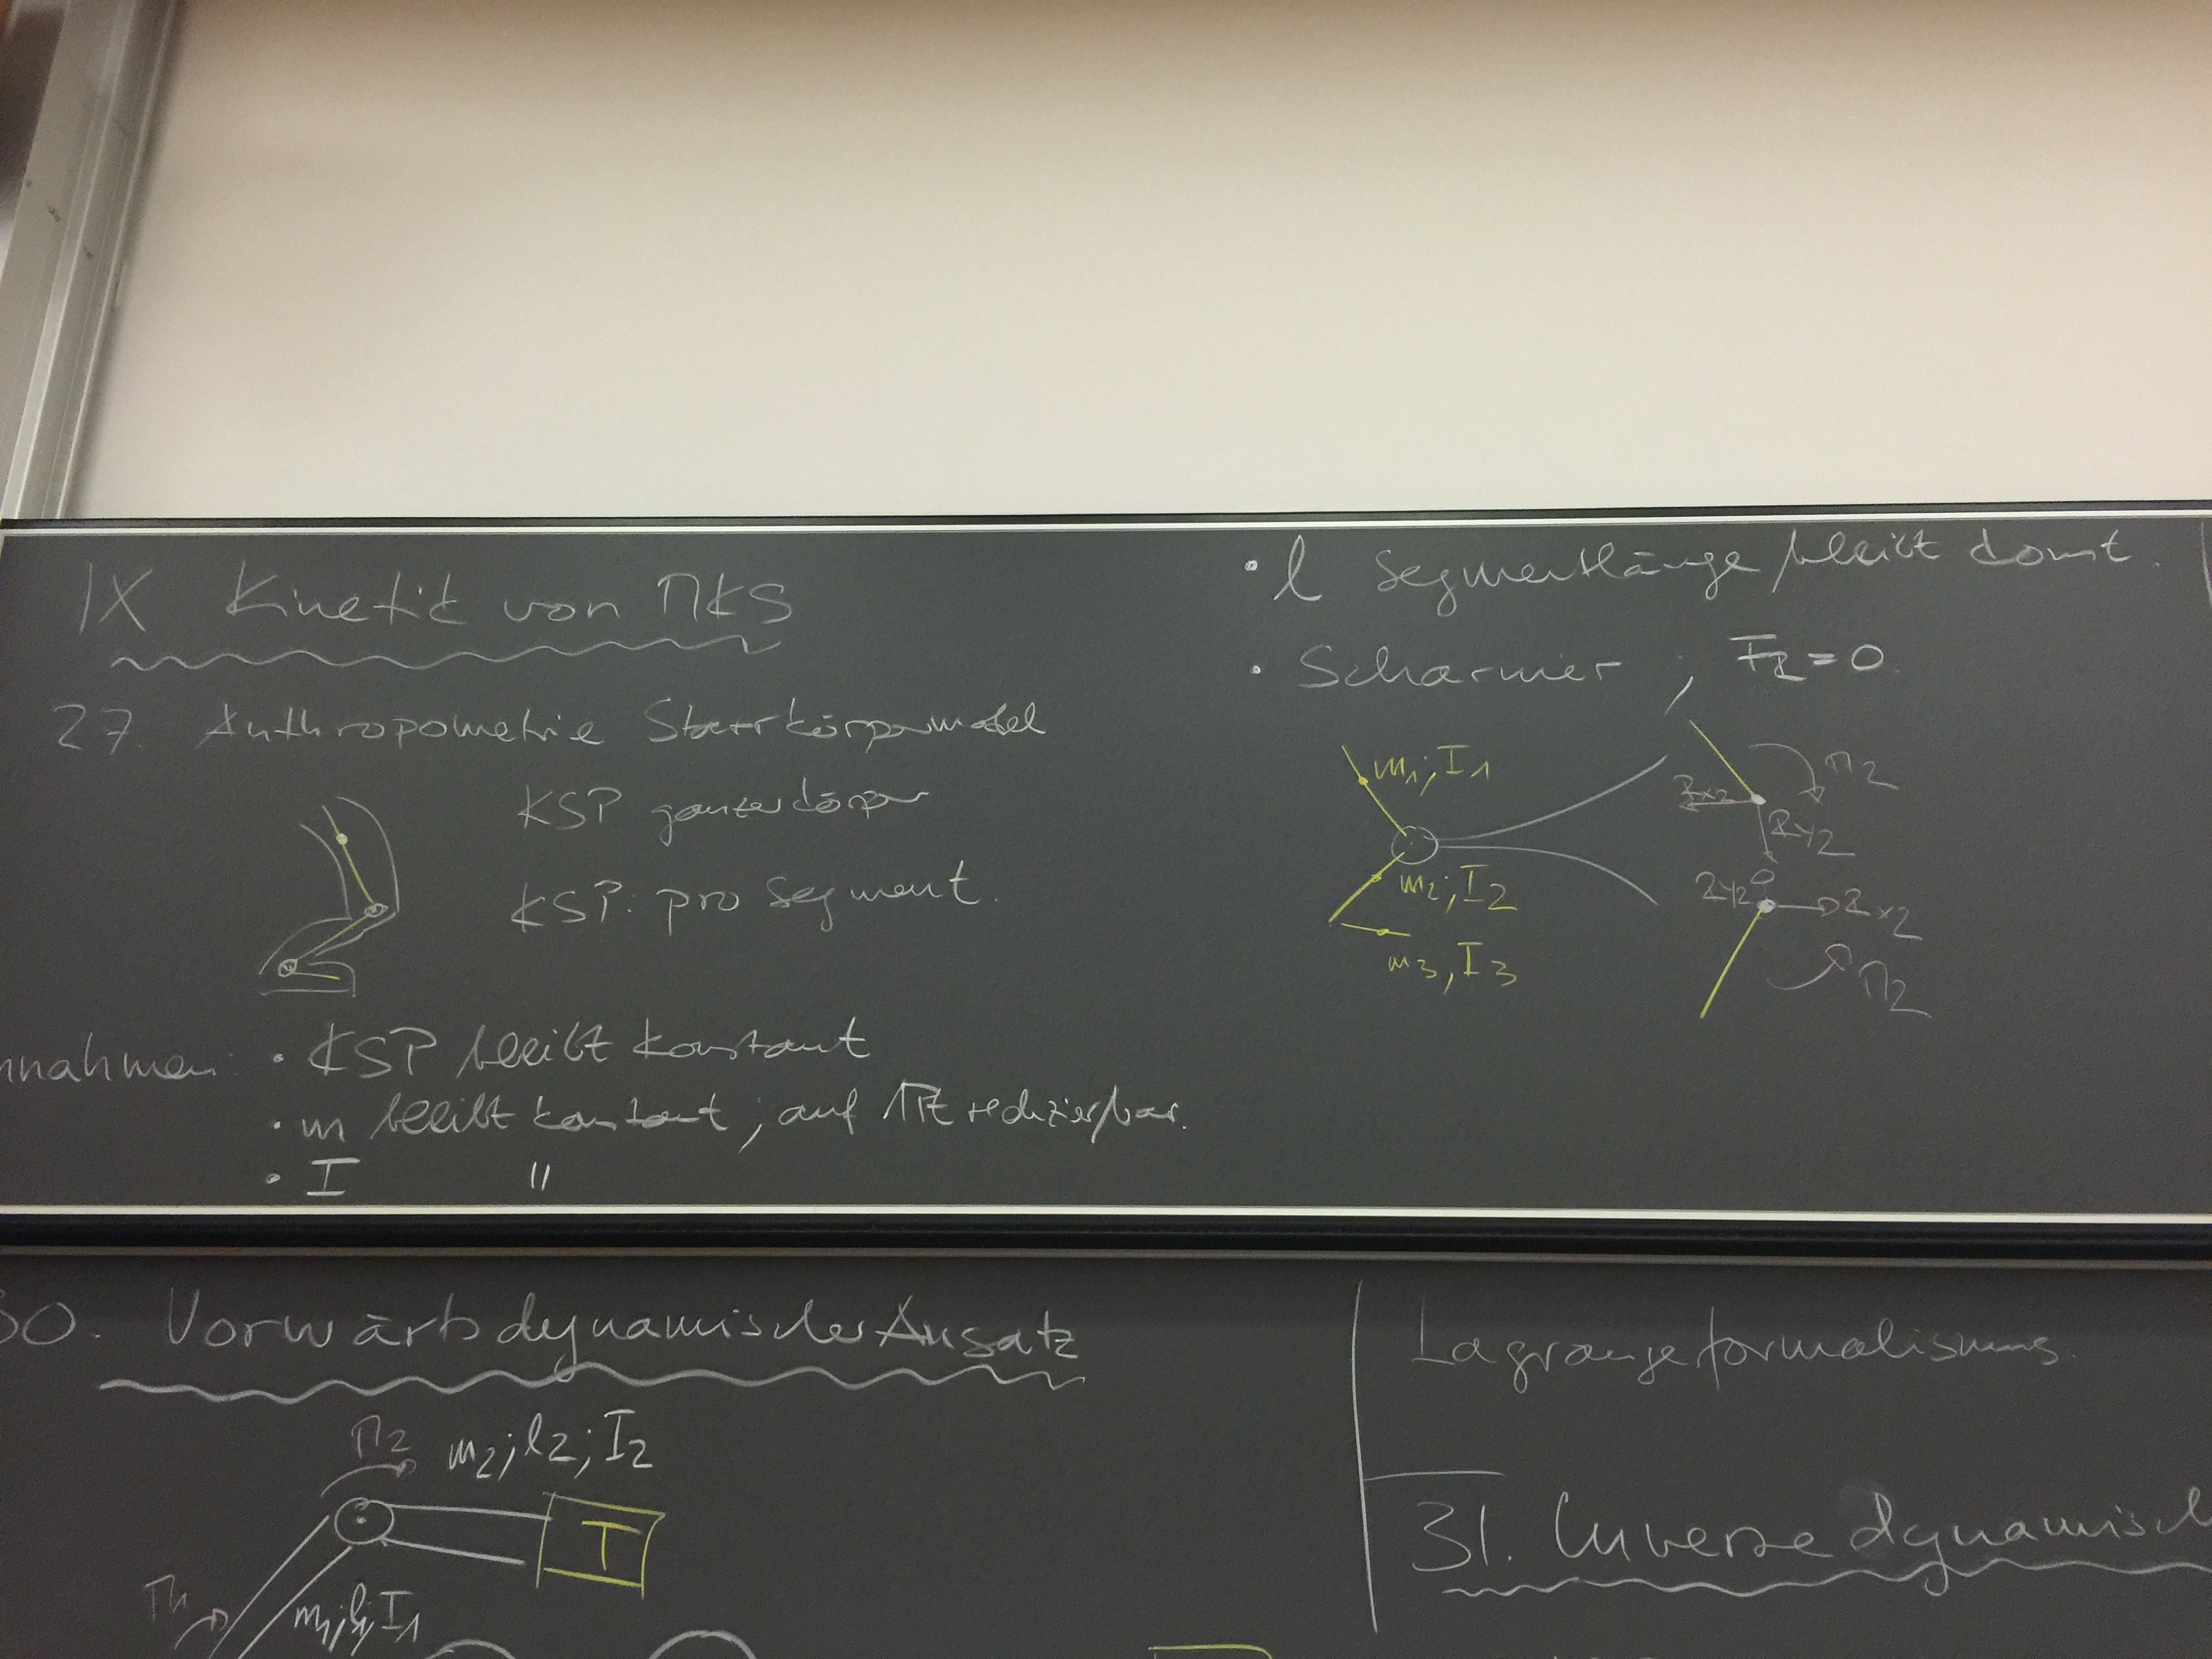 IX Kinetik von MKS
27. Anthropometrie Starrkörpermodel
KSP ganzerkörper
KSP: pro Segment.
nnahmen: • KSP bleibt konstant
• m bleibt konstant; auf reduzierbar.
• I "
• l Segmentlänge bleibt konst.
• Scharnier ; =0
m1; I1
m2; I2
m3, I3
M2
Zx2
Zy2
Zy2
Zx2
M2
30. Vorwärtsdynamischer Ansatz
M2 m2; l2; I2
T
M1
m1; l1; I1
Lagrangeformalismus.
31. Inverse dynamisch